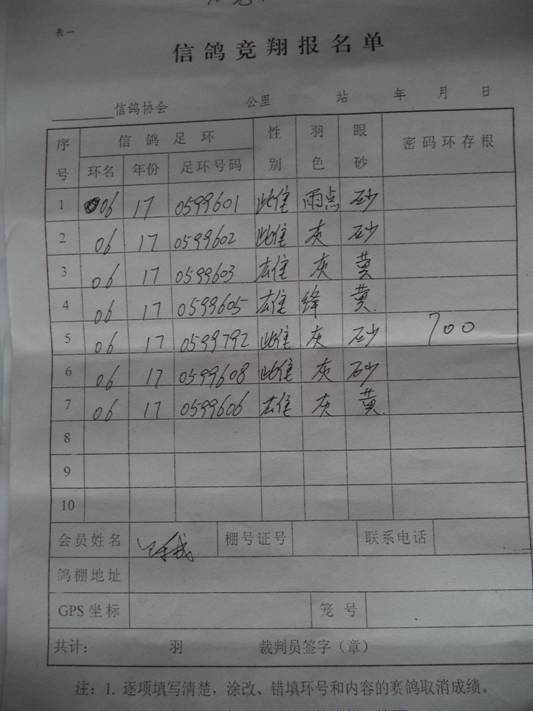 表一
信鸽竞翔报名单
信鸽协会 公里 站 年 月 日
序号 信鸽足环 性别 羽色 眼砂 密码环存根
环名 年份 足环号码
1 06 17 0599601 雌 雨点 砂
2 06 17 0599602 雌 灰 砂
3 06 17 0599603 雄 灰 黄
4 06 17 0599605 雄 绛 黄
5 06 17 0599792 雌 灰 砂 700
6 06 17 0599608 雌 灰 砂
7 06 17 0599606 雄 灰 黄
8
9
10
会员姓名 棚号证号 联系电话
鸽棚地址
GPS坐标 笼号
共计: 羽 裁判员签字(章)
注:1. 逐项填写清楚,涂改、错填环号和内容的赛鸽取消成绩。